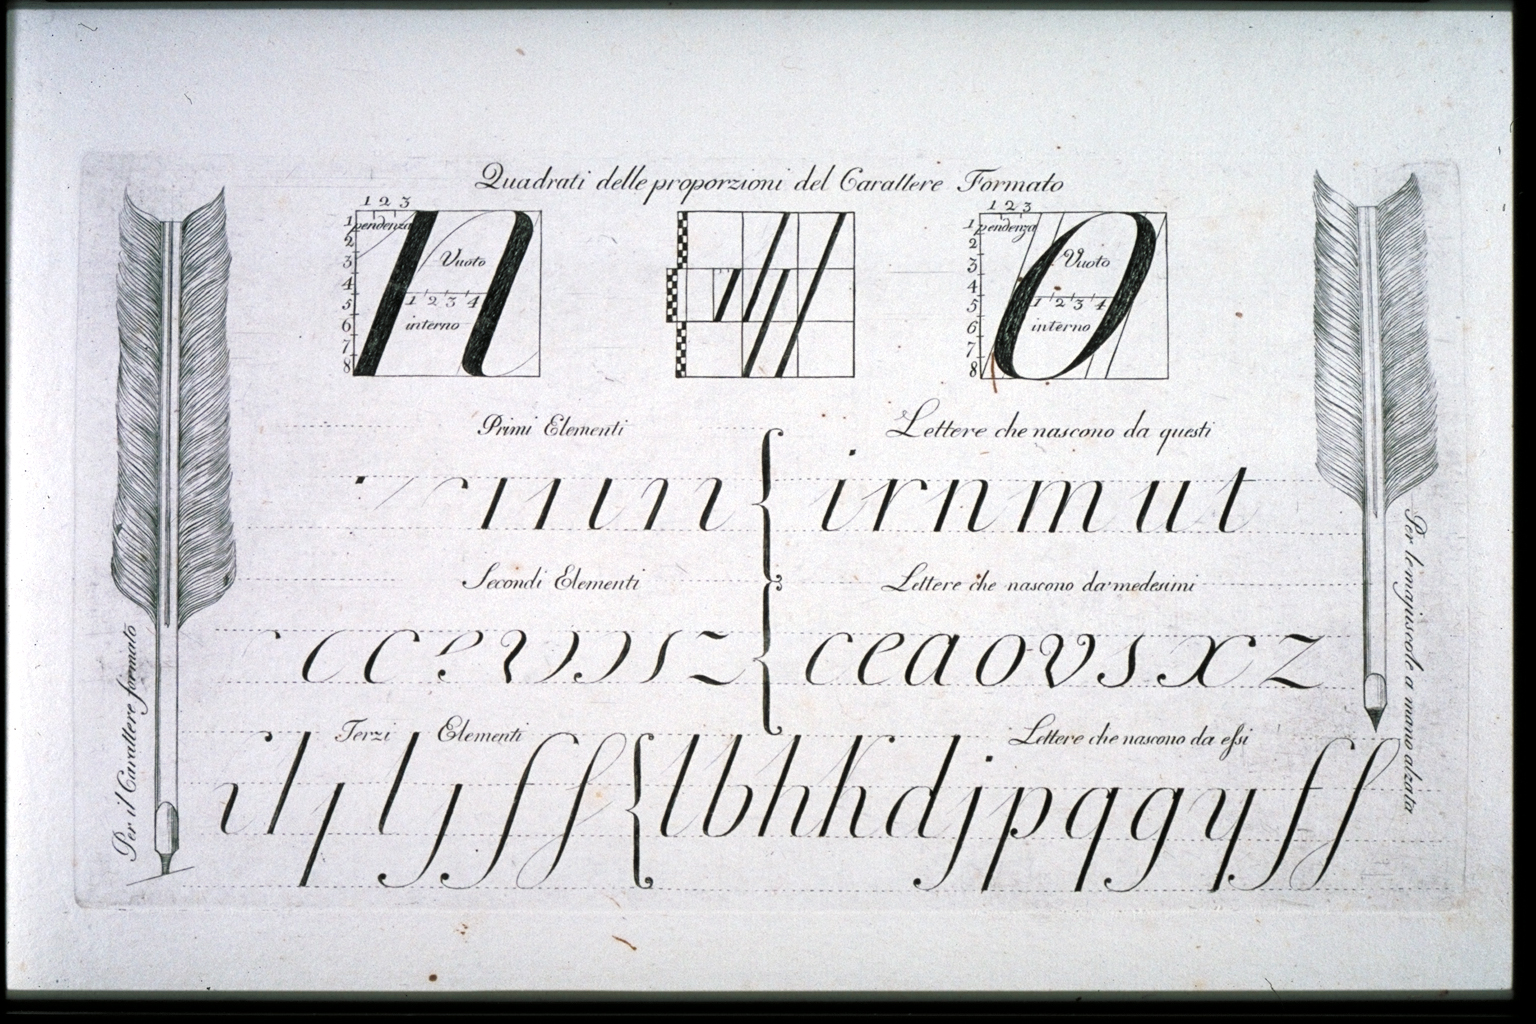 Quadrati delle proporzioni del Carattere Formato
1 2 3
pendenza
1 2 3 4 5 6 7 8
n
Vuoto
1 2 3 4
interno
1 2 3
pendenza
1 2 3 4 5 6 7 8
o
Vuoto
1 2 3 4
interno
Primi Elementi
Lettere che nascono da questi
i r n m u t
Secondi Elementi
Lettere che nascono da' medesimi
c e a o v s x z
Terzi Elementi
Lettere che nascono da essi
l b h k d j p q g y ſ f
Per il Carattere formato
Per le majuscole a mano alzata